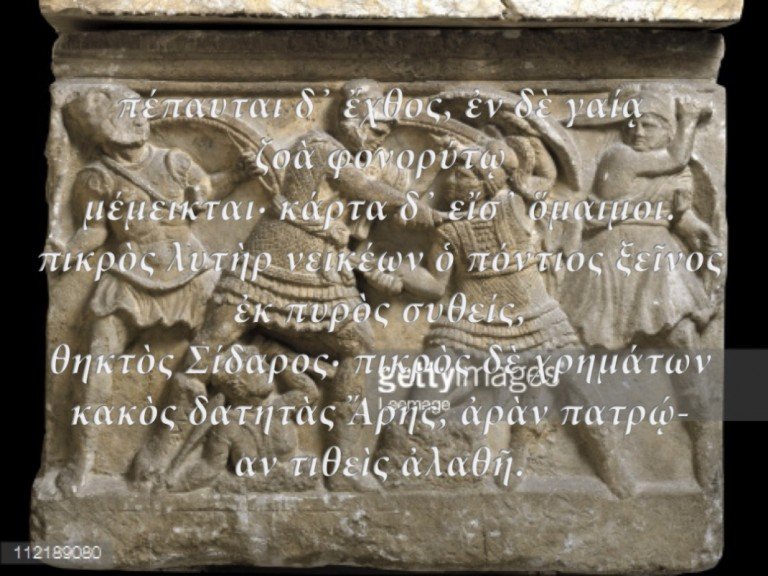 πέπαυται δ᾽ ἔχθος, ἐν δὲ γαίᾳ
ζοὰ φονορύτῳ
μέμεικται· κάρτα δ᾽ εἴσ᾽ ὅμαιμοι.
πικρὸς λυτὴρ νεικέων ὁ πόντιος ξεῖνος
ἐκ πυρὸς συθείς,
θηκτὸς Σίδαρος· πικρὸς δὲ χρημάτων
gettyimages
κακὸς δατητὰς Ἄρης, ἀρὰν πατρῴ-
Leemage
αν τιθεὶς ἀλαθῆ.
112189080